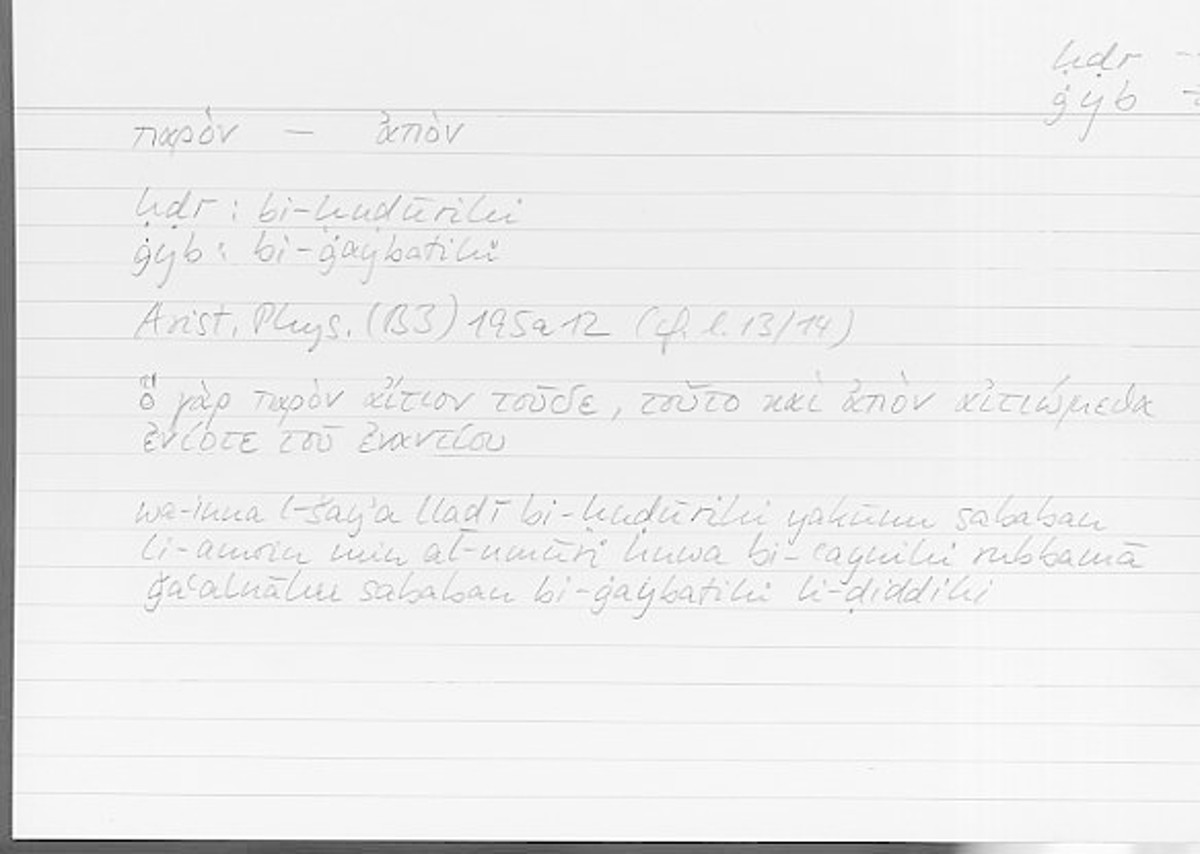 ḥḍr —
ġyb
παρὸν — ἀπὸν
ḥḍr : bi-ḥuḍūrihi
ġyb : bi-ġaybatihi
Arist. Phys. (B3) 195a12 (cf. l. 13/14)
ὃ γὰρ παρὸν αἴτιον τοῦδε, τοῦτο καὶ ἀπὸν αἰτιώμεθα
ἐνίοτε τοῦ ἐναντίου
wa-inna l-šayʾa lladī bi-ḥuḍūrihi yakūnu sababan
li-amrin min al-umūri huwa bi-ʿaynihi rubbamā
ǧaʿalnāhu sababan bi-ġaybatihi li-ḍiddihi